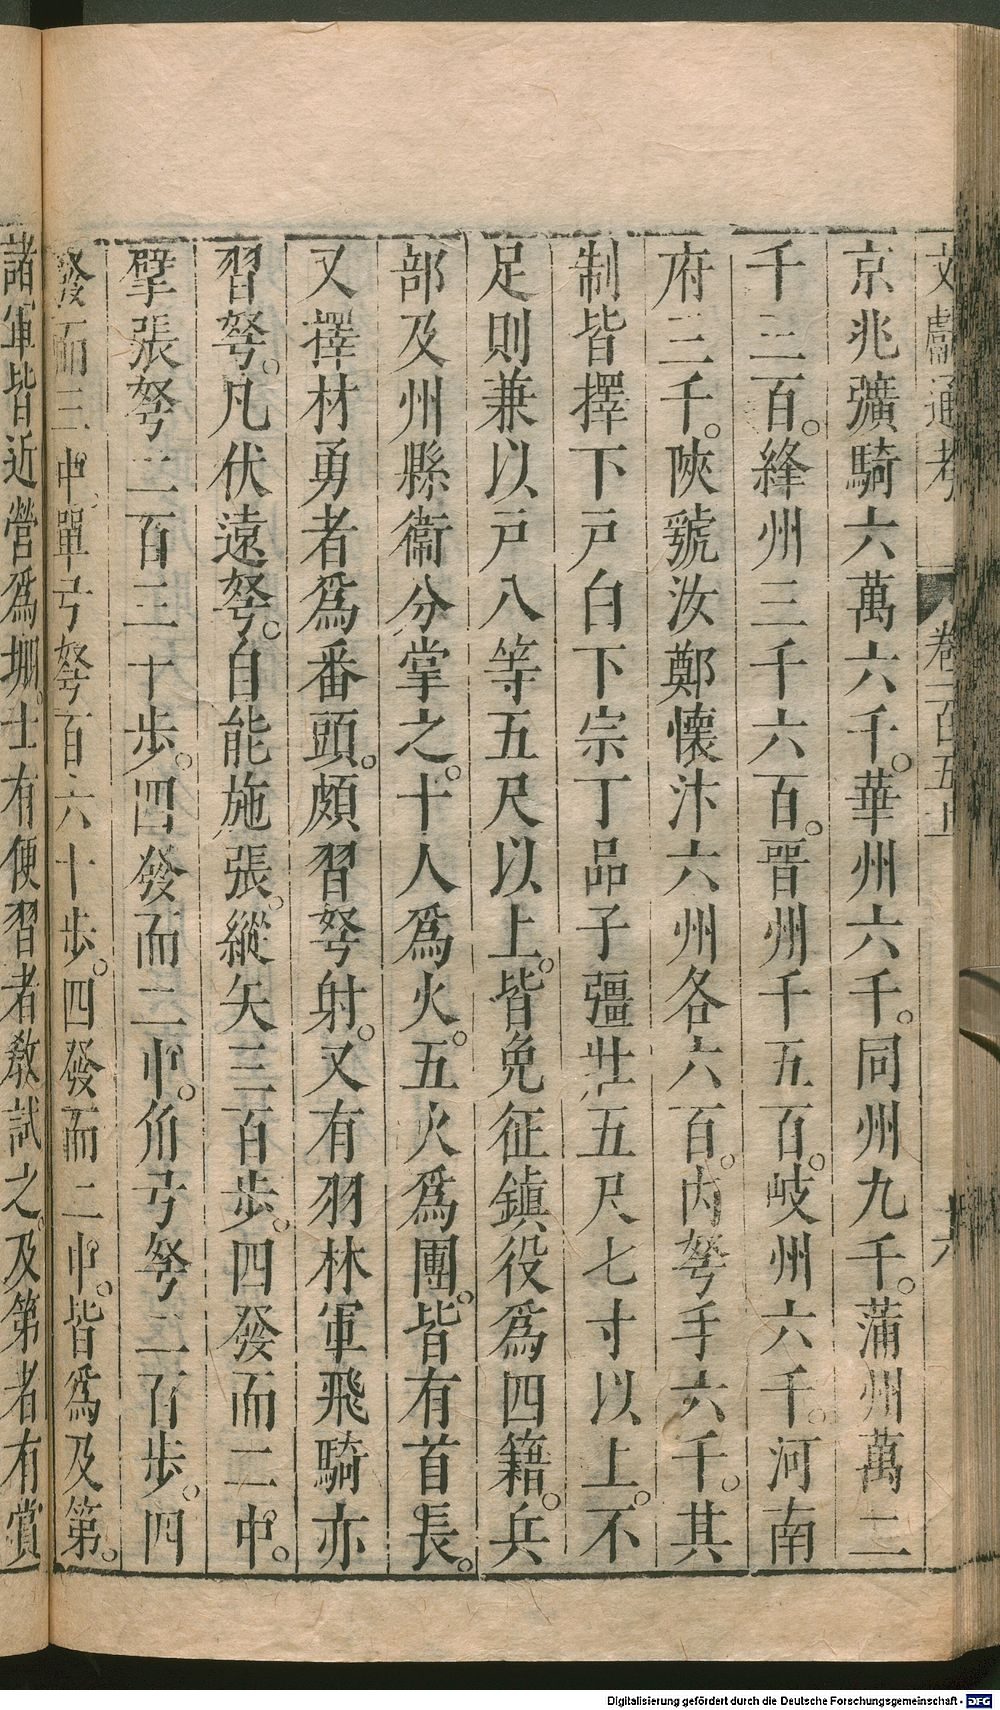 文獻通考 卷一百五上 十六
京兆彍騎六萬六千。華州六千。同州九千。蒲州萬二
千三百。絳州三千六百。晉州千五百。岐州六千。河南
府三千。陝虢汝鄭懷汴六州各六百。內弩手六千。其
制皆擇下戸白下宗丁品子彊壯五尺七寸以上。不
足則兼以戸八等五尺以上。皆免征鎮役爲四籍。兵
部及州縣衞分掌之。十人爲火。五火爲團。皆有首長。
又擇材勇者爲番頭。頗習弩射。又有羽林軍飛騎亦
習弩。凡伏遠弩。自能施張。縱矢三百步。四發而二中。
擘張弩二百三十步。四發而二中。角弓弩二百步。四
發而三中。單弓弩百六十步。四發而二中。皆爲及第。
諸軍皆近營爲堋。士有便習者教試之。及第者有賞
Digitalisierung gefördert durch die Deutsche Forschungsgemeinschaft - DFG